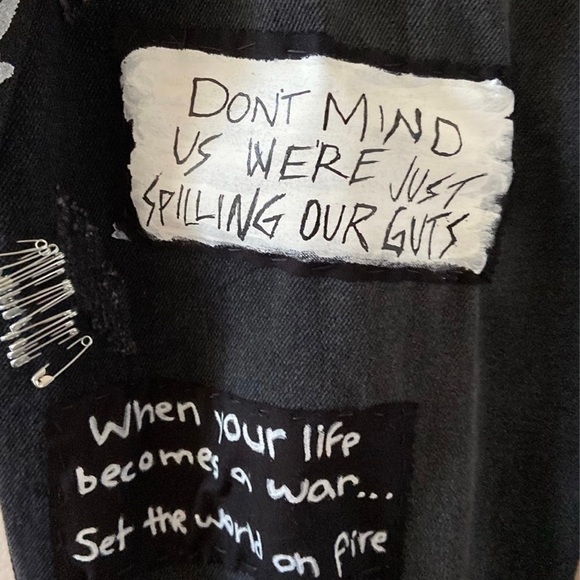 DON'T MIND
US WE'RE JUST
SPILLING OUR GUTS
When your life
becomes a war...
Set the world
on fire